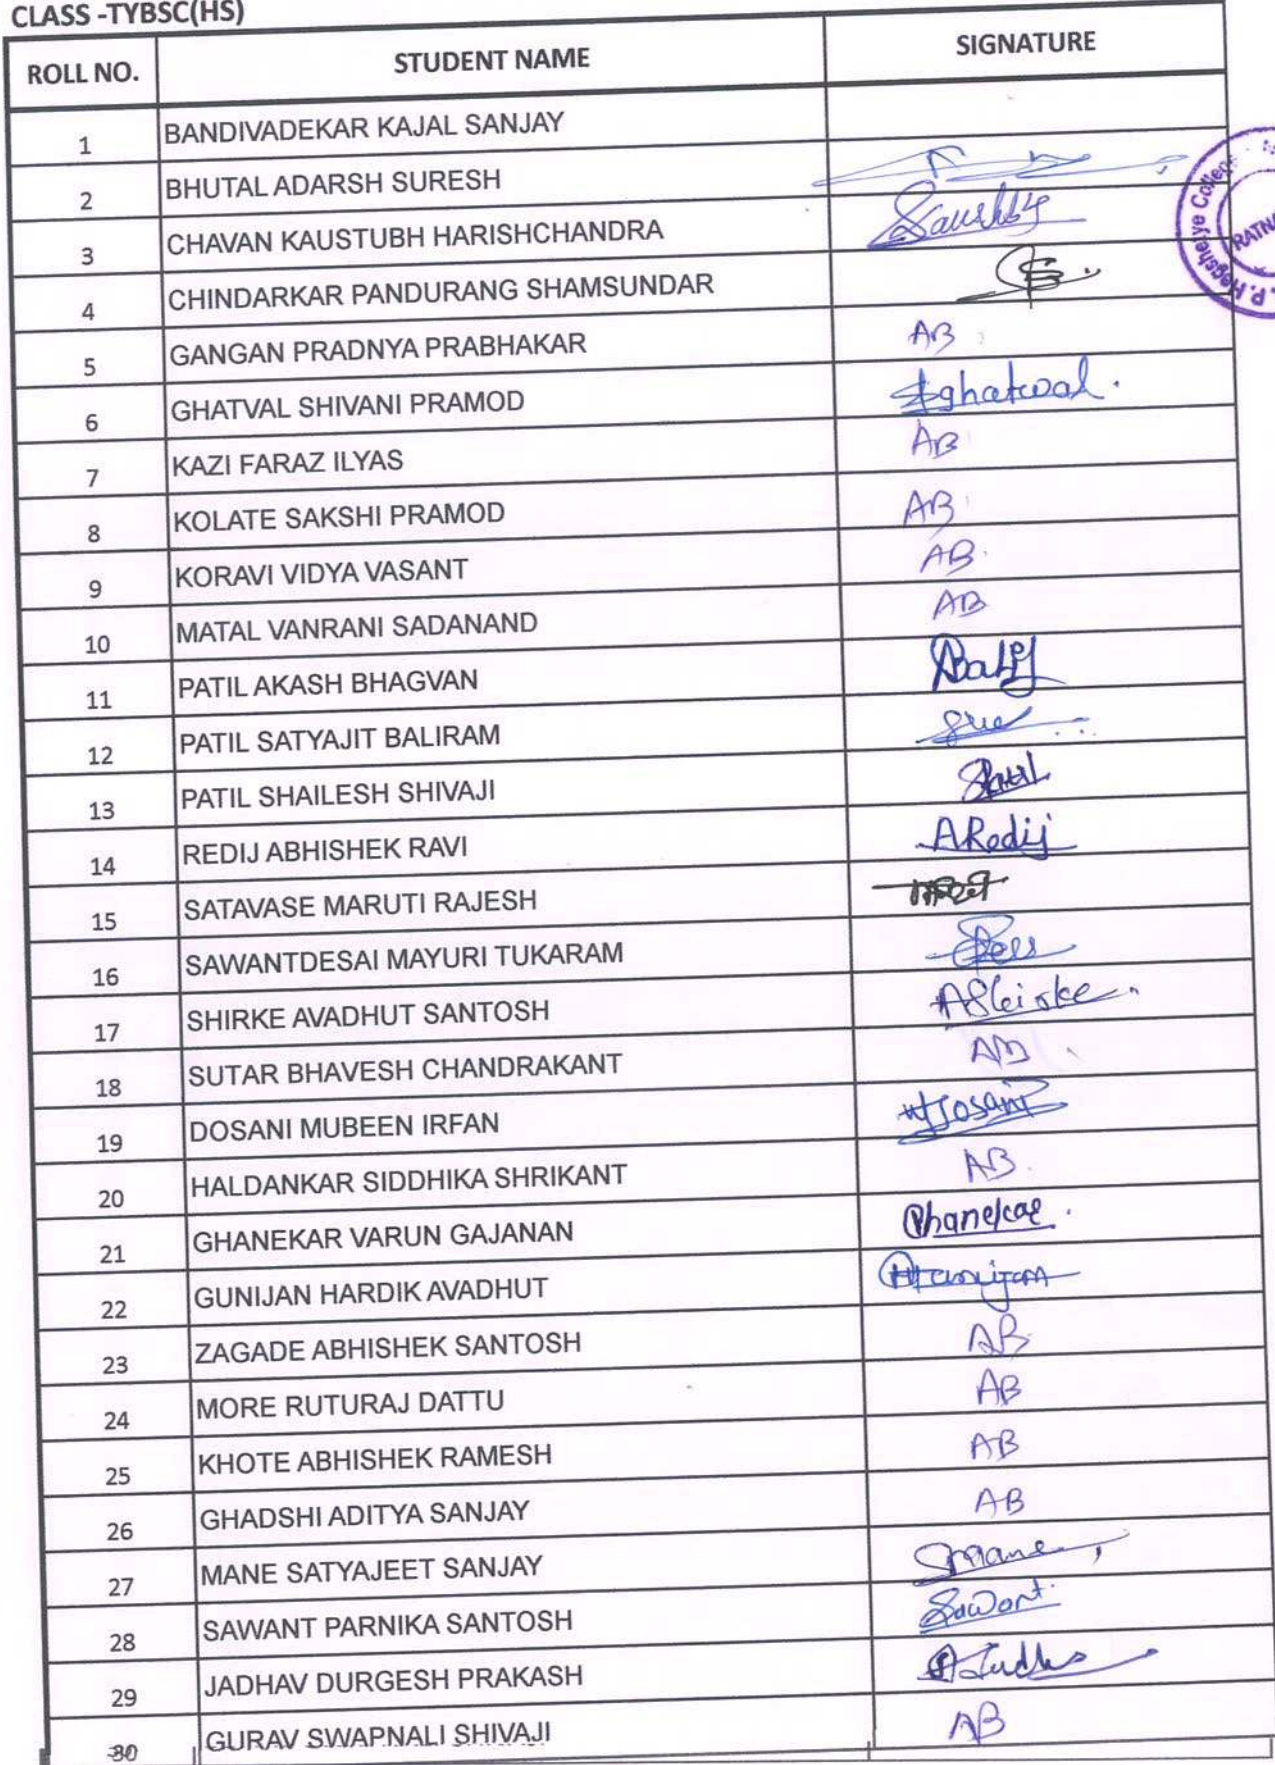 CLASS -TYBSC(HS)
ROLL NO. STUDENT NAME SIGNATURE
1 BANDIVADEKAR KAJAL SANJAY
2 BHUTAL ADARSH SURESH
3 CHAVAN KAUSTUBH HARISHCHANDRA
4 CHINDARKAR PANDURANG SHAMSUNDAR
5 GANGAN PRADNYA PRABHAKAR AB
6 GHATVAL SHIVANI PRAMOD Sghatwal.
7 KAZI FARAZ ILYAS AB
8 KOLATE SAKSHI PRAMOD AB
9 KORAVI VIDYA VASANT AB.
10 MATAL VANRANI SADANAND AB
11 PATIL AKASH BHAGVAN
12 PATIL SATYAJIT BALIRAM
13 PATIL SHAILESH SHIVAJI
14 REDIJ ABHISHEK RAVI ARedij
15 SATAVASE MARUTI RAJESH
16 SAWANTDESAI MAYURI TUKARAM
17 SHIRKE AVADHUT SANTOSH AShirke
18 SUTAR BHAVESH CHANDRAKANT AB
19 DOSANI MUBEEN IRFAN
20 HALDANKAR SIDDHIKA SHRIKANT AB.
21 GHANEKAR VARUN GAJANAN Ghanekar.
22 GUNIJAN HARDIK AVADHUT
23 ZAGADE ABHISHEK SANTOSH AB
24 MORE RUTURAJ DATTU AB
25 KHOTE ABHISHEK RAMESH AB
26 GHADSHI ADITYA SANJAY AB
27 MANE SATYAJEET SANJAY Smane
28 SAWANT PARNIKA SANTOSH Sawant.
29 JADHAV DURGESH PRAKASH
30 GURAV SWAPNALI SHIVAJI AB